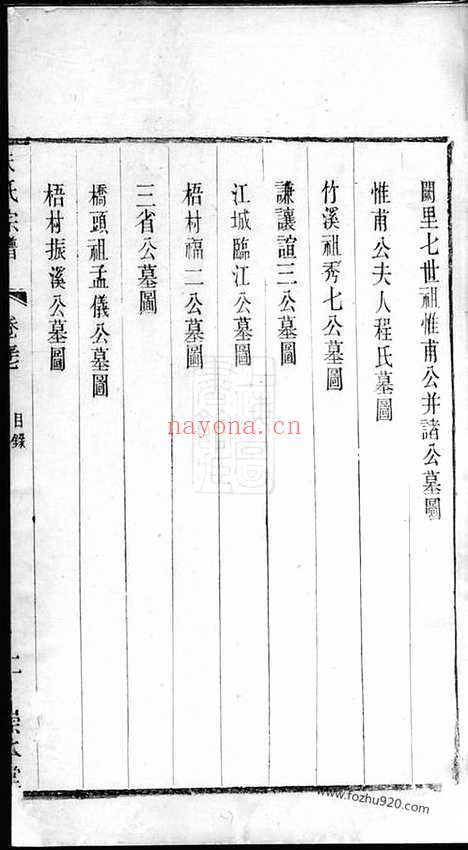 闕里七世祖惟甫公并諸公墓圖
惟甫公夫人程氏墓圖
竹溪祖秀七公墓圖
謙讓諠三公墓圖
江城臨江公墓圖
梧村福二公墓圖
三省公墓圖
橋頭祖孟儀公墓圖
梧村振溪公墓圖
氏宗譜
目錄
nayona.cn
www.fozhu920.com